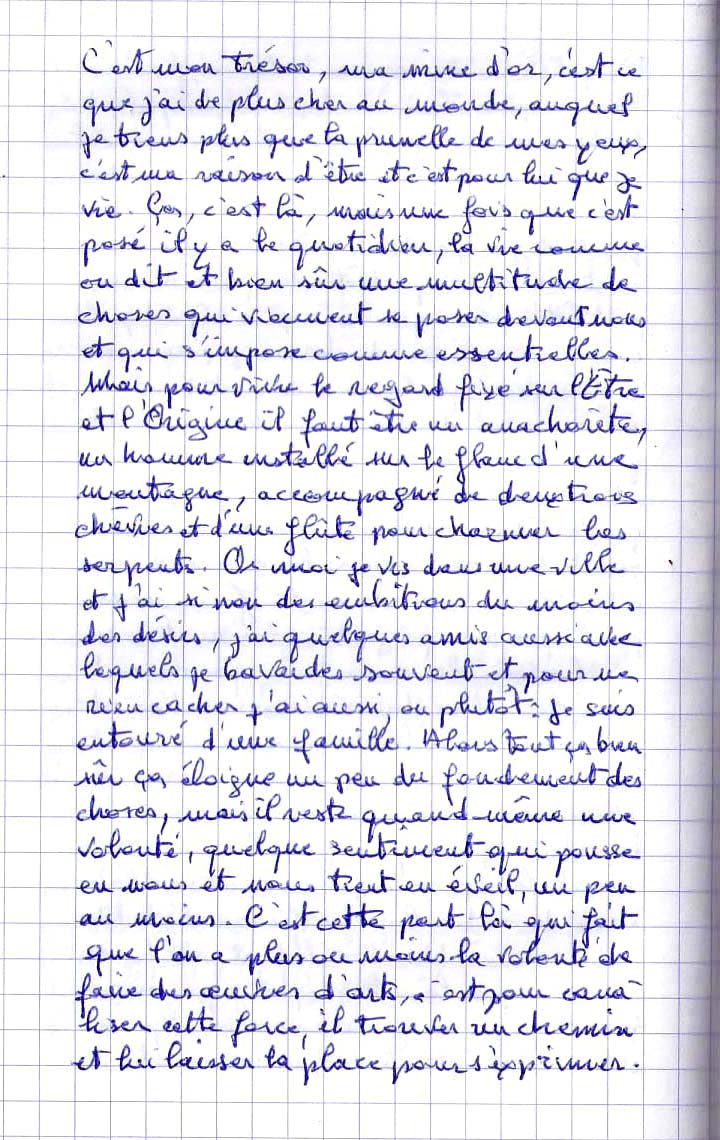 C'est mon trésor, ma mine d'or, c'est ce
que j'ai de plus cher au monde, auquel
je tiens plus que la prunelle de mes yeux,
c'est ma raison d'être et c'est pour lui que je
vie. Ça, c'est là, mais une fois que c'est
posé il y a le quotidien, la vie comme
on dit et bien sûr une multitude de
choses qui viennent se poser devant nous
et qui s'impose comme essentielles.
Mais pour vivre le regard fixé sur l'Être
et l'Origine il faut être un anachorète,
un homme installé sur le flanc d'une
montagne, accompagné de deux trois
chèvres et d'une flûte pour charmer les
serpents. Or moi je vis dans une ville
et j'ai si non des ambitions du moins
des désirs, j'ai quelques amis aussi avec
lequels je bavardes souvent et pour ne
rien cacher j'ai aussi, ou plutôt : je suis
entouré d'une famille. Alors tout ça bien
sûr ça éloigne un peu du fondement des
choses, mais il reste quand-même une
volonté, quelque sentiment qui pousse
en nous et nous tient en éveil, un peu
au moins. C'est cette part là qui fait
que l'on a plus ou moins la volonté de
faire des œuvres d'arts, c'est pour cana-
liser cette force, trouver un chemin
et lui laisser la place pour s'exprimer.